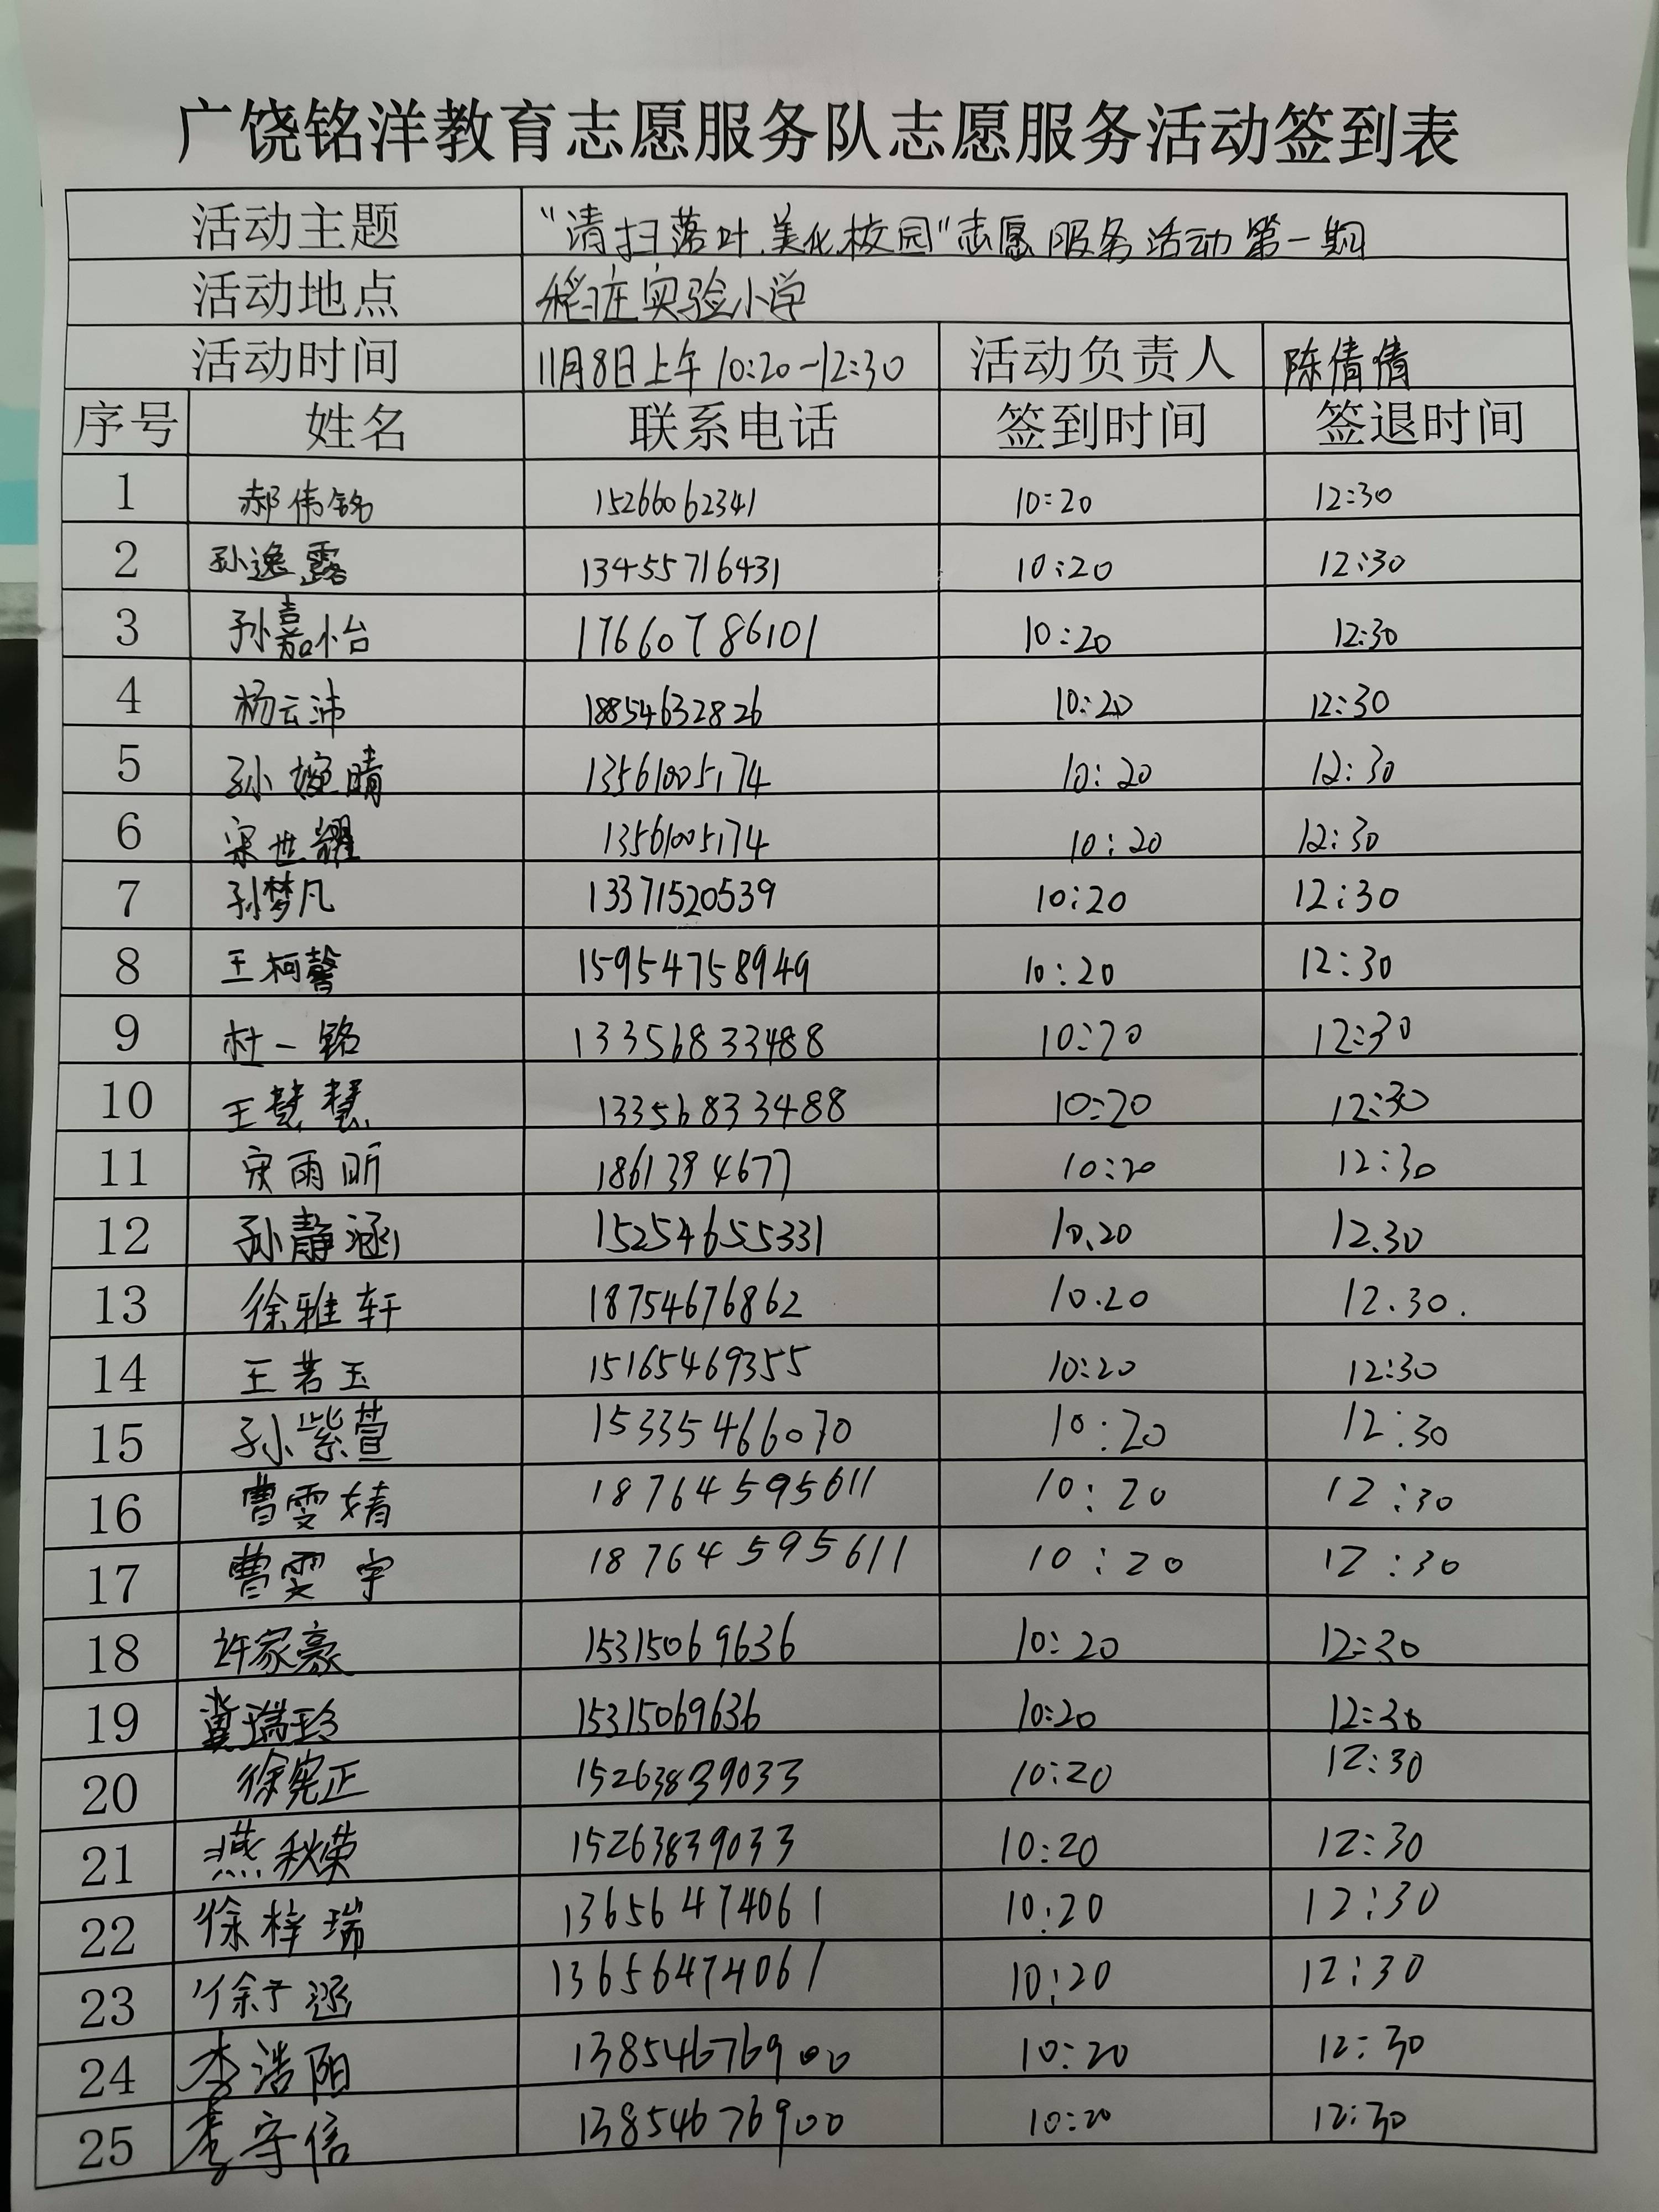 广饶铭洋教育志愿服务队志愿服务活动签到表
活动主题 "清扫落叶.美化校园"志愿服务活动第一期
活动地点 稻庄实验小学
活动时间 11月8日上午10:20-12:30 活动负责人 陈倩倩
序号 姓名 联系电话 签到时间 签退时间
1 郝伟铭 15266062341 10:20 12:30
2 孙逸露 13455716431 10:20 12:30
3 孙嘉怡 17660786101 10:20 12:30
4 杨云沛 18854632826 10:20 12:30
5 孙婉晴 13561005174 10:20 12:30
6 宋世耀 13561005174 10:20 12:30
7 孙梦凡 13371520539 10:20 12:30
8 王柯馨 15954758949 10:20 12:30
9 杜一铭 13356833488 10:20 12:30
10 王慧慧 13356833488 10:20 12:30
11 宋雨昕 1861394677 10:20 12:30
12 孙静涵 15254655331 10.20 12.30
13 徐雅轩 18754676862 10.20 12.30.
14 王若玉 15165469355 10:20 12:30
15 孙紫萱 15335466070 10:20 12:30
16 曹雯婧 18764595611 10:20 12:30
17 曹雯宇 18764595611 10:20 12:30
18 许家豪 15315069636 10:20 12:30
19 冀瑞玲 15315069636 10:20 12:30
20 徐宪正 15263839033 10:20 12:30
21 燕秋荣 15263839033 10:20 12:30
22 徐梓瑞 13656474061 10:20 12:30
23 徐子涵 13656474061 10:20 12:30
24 李浩阳 13854676900 10:20 12:30
25 李守信 13854676900 10:20 12:30